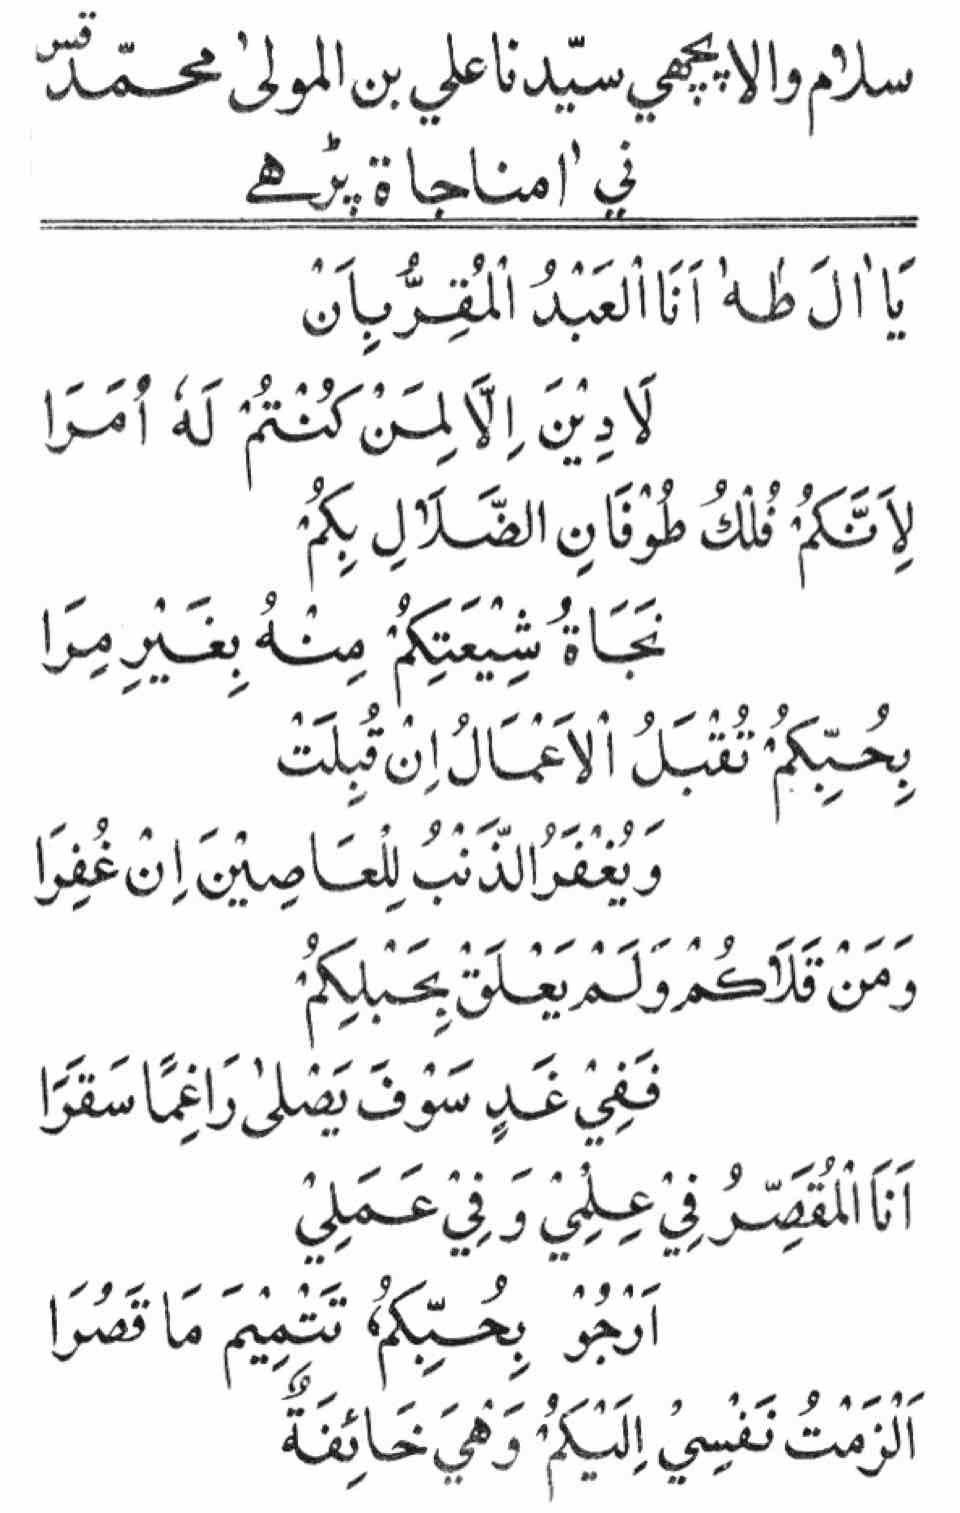 سلام والا پچھي سيّدنا علي بن المولىٰ محمّد قس
ني اٰ مناجاة پڑھے
يَا اٰلَ طٰهٰ اَنَا الْعَبْدُ الْمُقِرُّ بِاَنْ
لَا دِيْنَ اِلَّا لِمَنْ كُنْتُمْ لَهٗ اُمَرَا
لِاَنَّكُمْ فُلْكُ طُوْفَانِ الضَّلَالِ بِكُمْ
نَجَاةُ شِيْعَتِكُمْ مِنْهُ بِغَيْرِ مِرَا
بِحُبِّكُمْ تُقْبَلُ الْاَعْمَالُ اِنْ قُبِلَتْ
وَيُغْفَرُ الذَّنْبُ لِلْعَاصِيْنَ اِنْ غُفِرَا
وَمَنْ قَلَاكُمْ وَلَمْ يَعْلَقْ بِحَبْلِكُمْ
فَفِيْ غَدٍ سَوْفَ يَصْلىٰ رَاغِمًا سَقَرَا
اَنَا الْمُقَصِّرُ فِيْ عِلْمِيْ وَفِيْ عَمَلِيْ
اَرْجُوْ بِحُبِّكُمُ تَتْمِيْمَ مَا قَصُرَا
اَلْزَمْتُ نَفْسِيْ اِلَيْكُمْ وَهْيَ خَائِفَةٌ